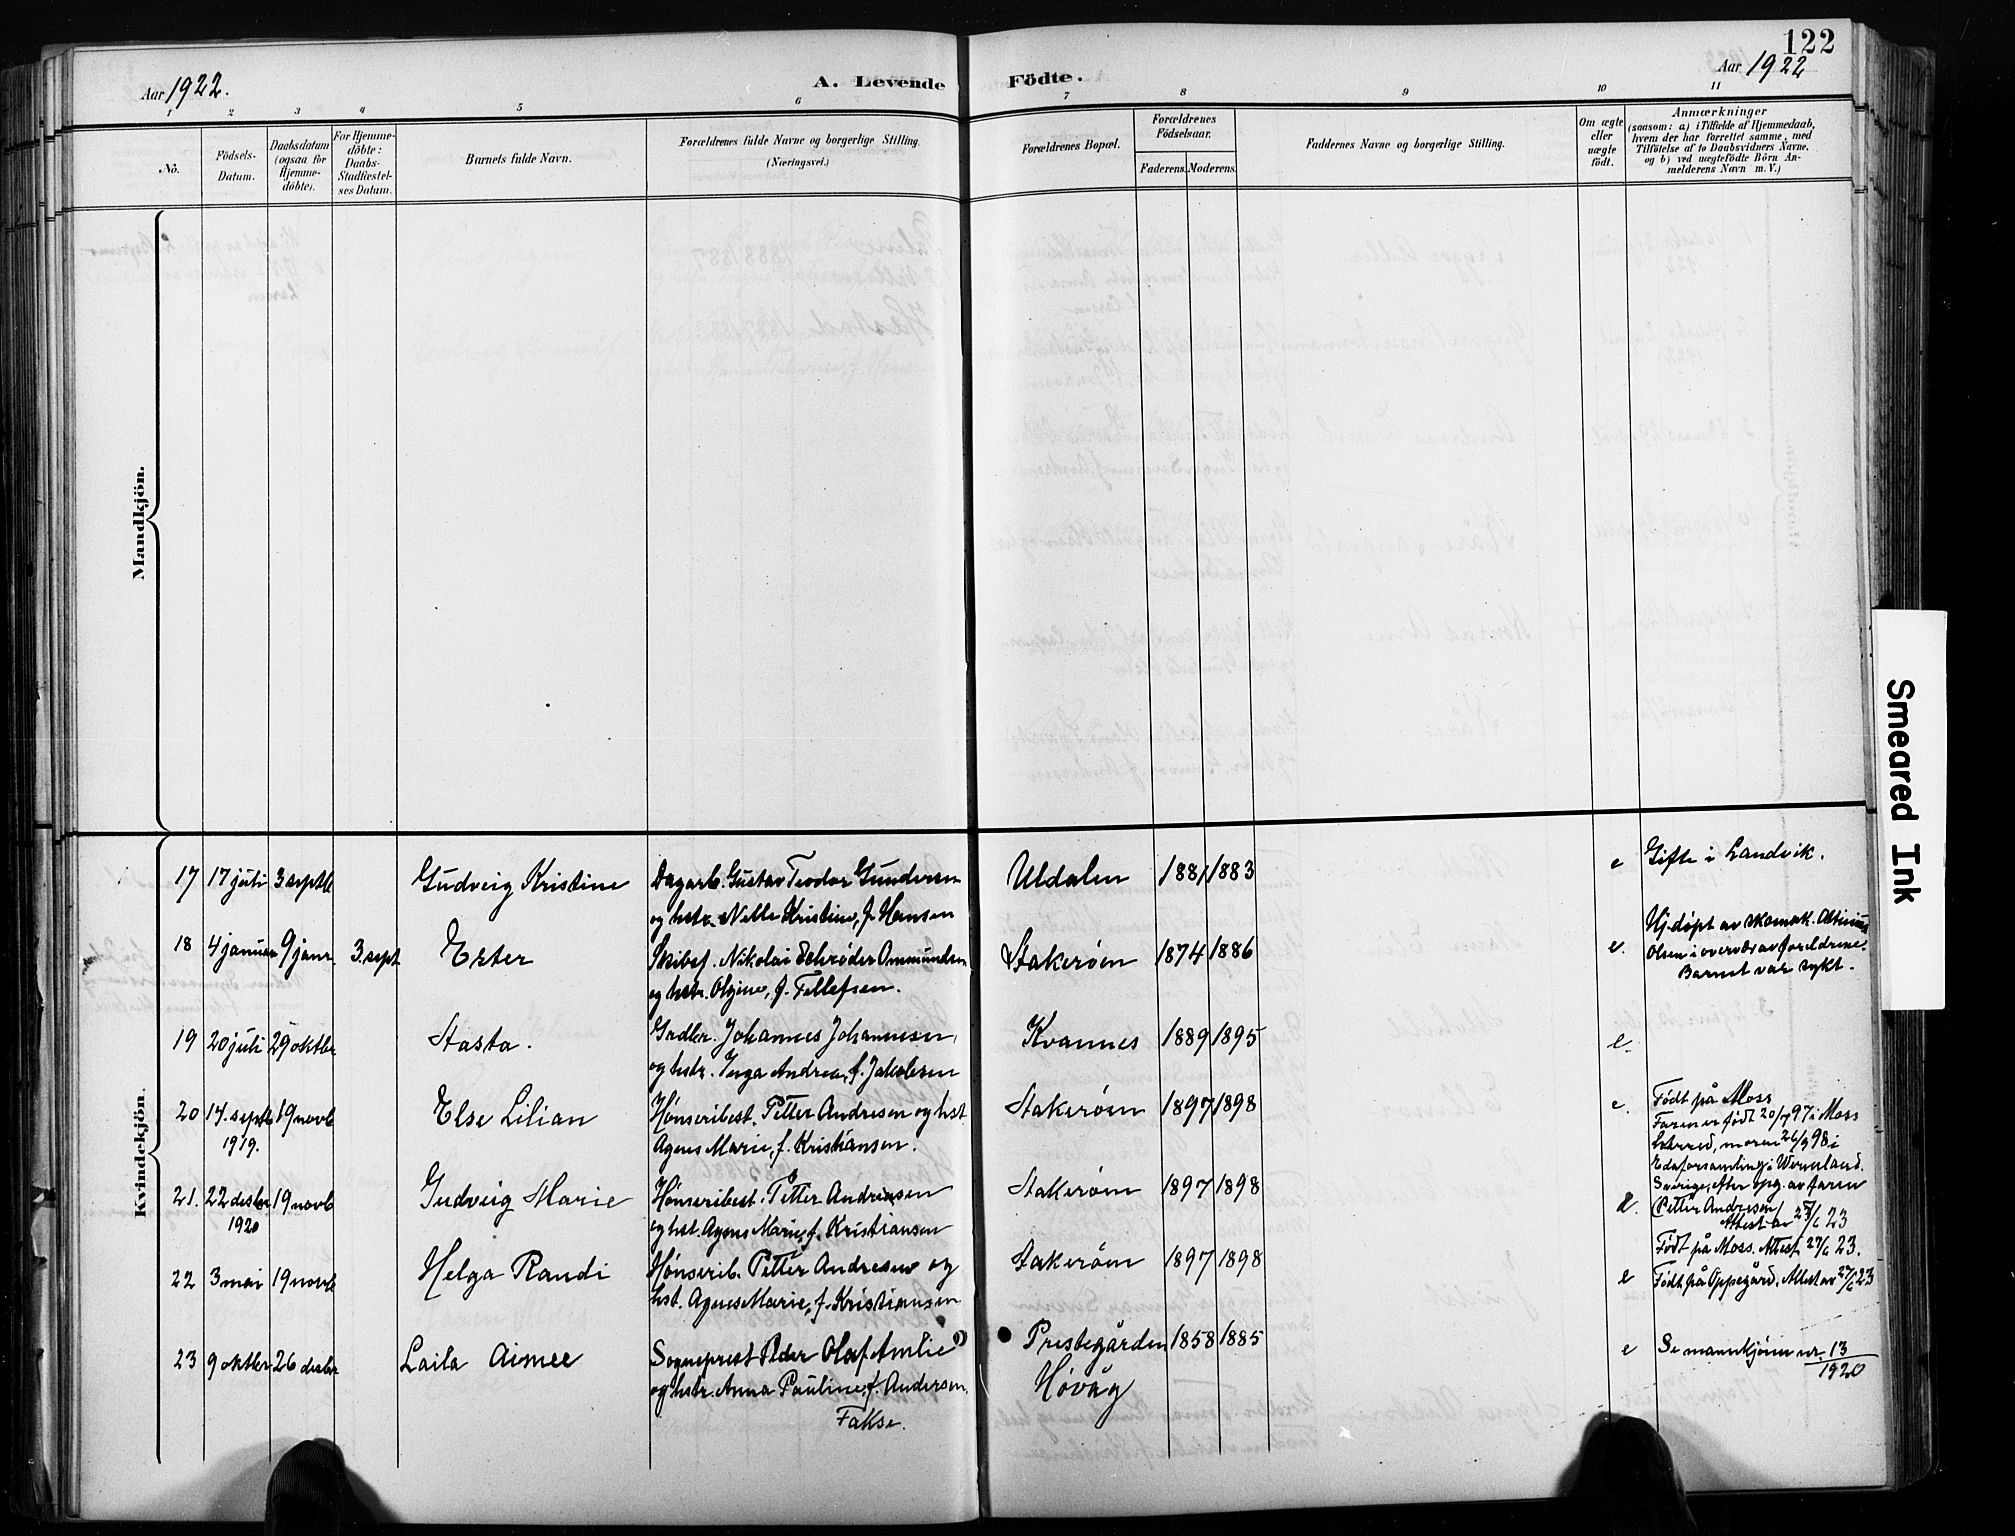 122
Aar 1922.
A. Levende
Födte.
Aar 1922
1 2 3 4 5 6 7 8 9 10 11
No.
Födsels-
Datum.
Daabsdatum
(ogsaa for
Hjemme-
döbte).
For Hjemme-
döbte:
Daabs-
Stadfæstel-
ses Datum.
Barnets fulde Navn.
Forældrenes fulde Navne og borgerlige Stilling.
(Næringsvei.)
Forældrenes Bopæl.
Forældrenes
Födselsaar.
Faderens. Moderens.
Faddernes Navne og borgerlige Stilling.
Om ægte
eller
uægte
födt.
Anmærkninger
(saasom: a) i Tilfælde af Hjemmedaab,
hvem der har forrettet samme, med
Tilföielse af to Daabsvidners Navne,
og b) ved uægtefödte Börn An-
melderens Navn m. V.)
Mandkjön.
Kvindekjön.
17 17 juli 3 septb Gudveig Kristine Dagarb. Gustav Teodor Gundersen Uldalen 1881 1883 e Gifte i Landvik.
og hstr. Nelle Kristine, f. Hansen
18 4 januar 9 janr 3. sept Ester Skibsf. Nikolai Schrøder Ommundsen Stakerøen 1874 1886 e. Hj.døpt av skomak.
og hstr. Olgine, f. Tellefsen.
Olsen i overvær av foreldrene.
Barnet var sykt.
19 20 juli 29 oktbr Aasta. Grdbr. Johannes Johannesen, Kvannes 1889 1895 e.
og hstr. Inga Andrea, f. Jakobsen
20 14. septb 19 novb Else Lilian Hønseribest. Petter Andresen og hst Stakerøen 1897 1898 e. Født på Moss
1919.
Agnes Marie, f. Kristiansen.
Faren er født 20/7 97 i Moss
Landsogn, moren 26/9 98 i
Edaforsamling i Wermland.
Sverige, efter opg. av faren
21. 22 desbr 19 novb Gudveig Marie Hønseribest. Petter Andresen Stakerøen 1897 1898 e. Petter Andresen
1920
og hst. Agnes Marie, f. Kristiansen
Attest av 27/6 23
Født på Moss. Attest 27/6 23.
22 3 mai 19 novb Helga Randi Hønserib. Petter Andresen og Stakerøen 1897 1898 e Født på Oppegård. Attest av 27/6 23
hst. Agnes Marie, f. Kristiansen
23 9 oktbr 26 desbr Laila Aimee Sogneprest Peder Olaf Amlie Prestegården 1858 1885 e Se mannkjønn nr. 13/1920
og hstr. Anna Pauline, f. Andersen Høvåg
Fakse.
Smeared Ink